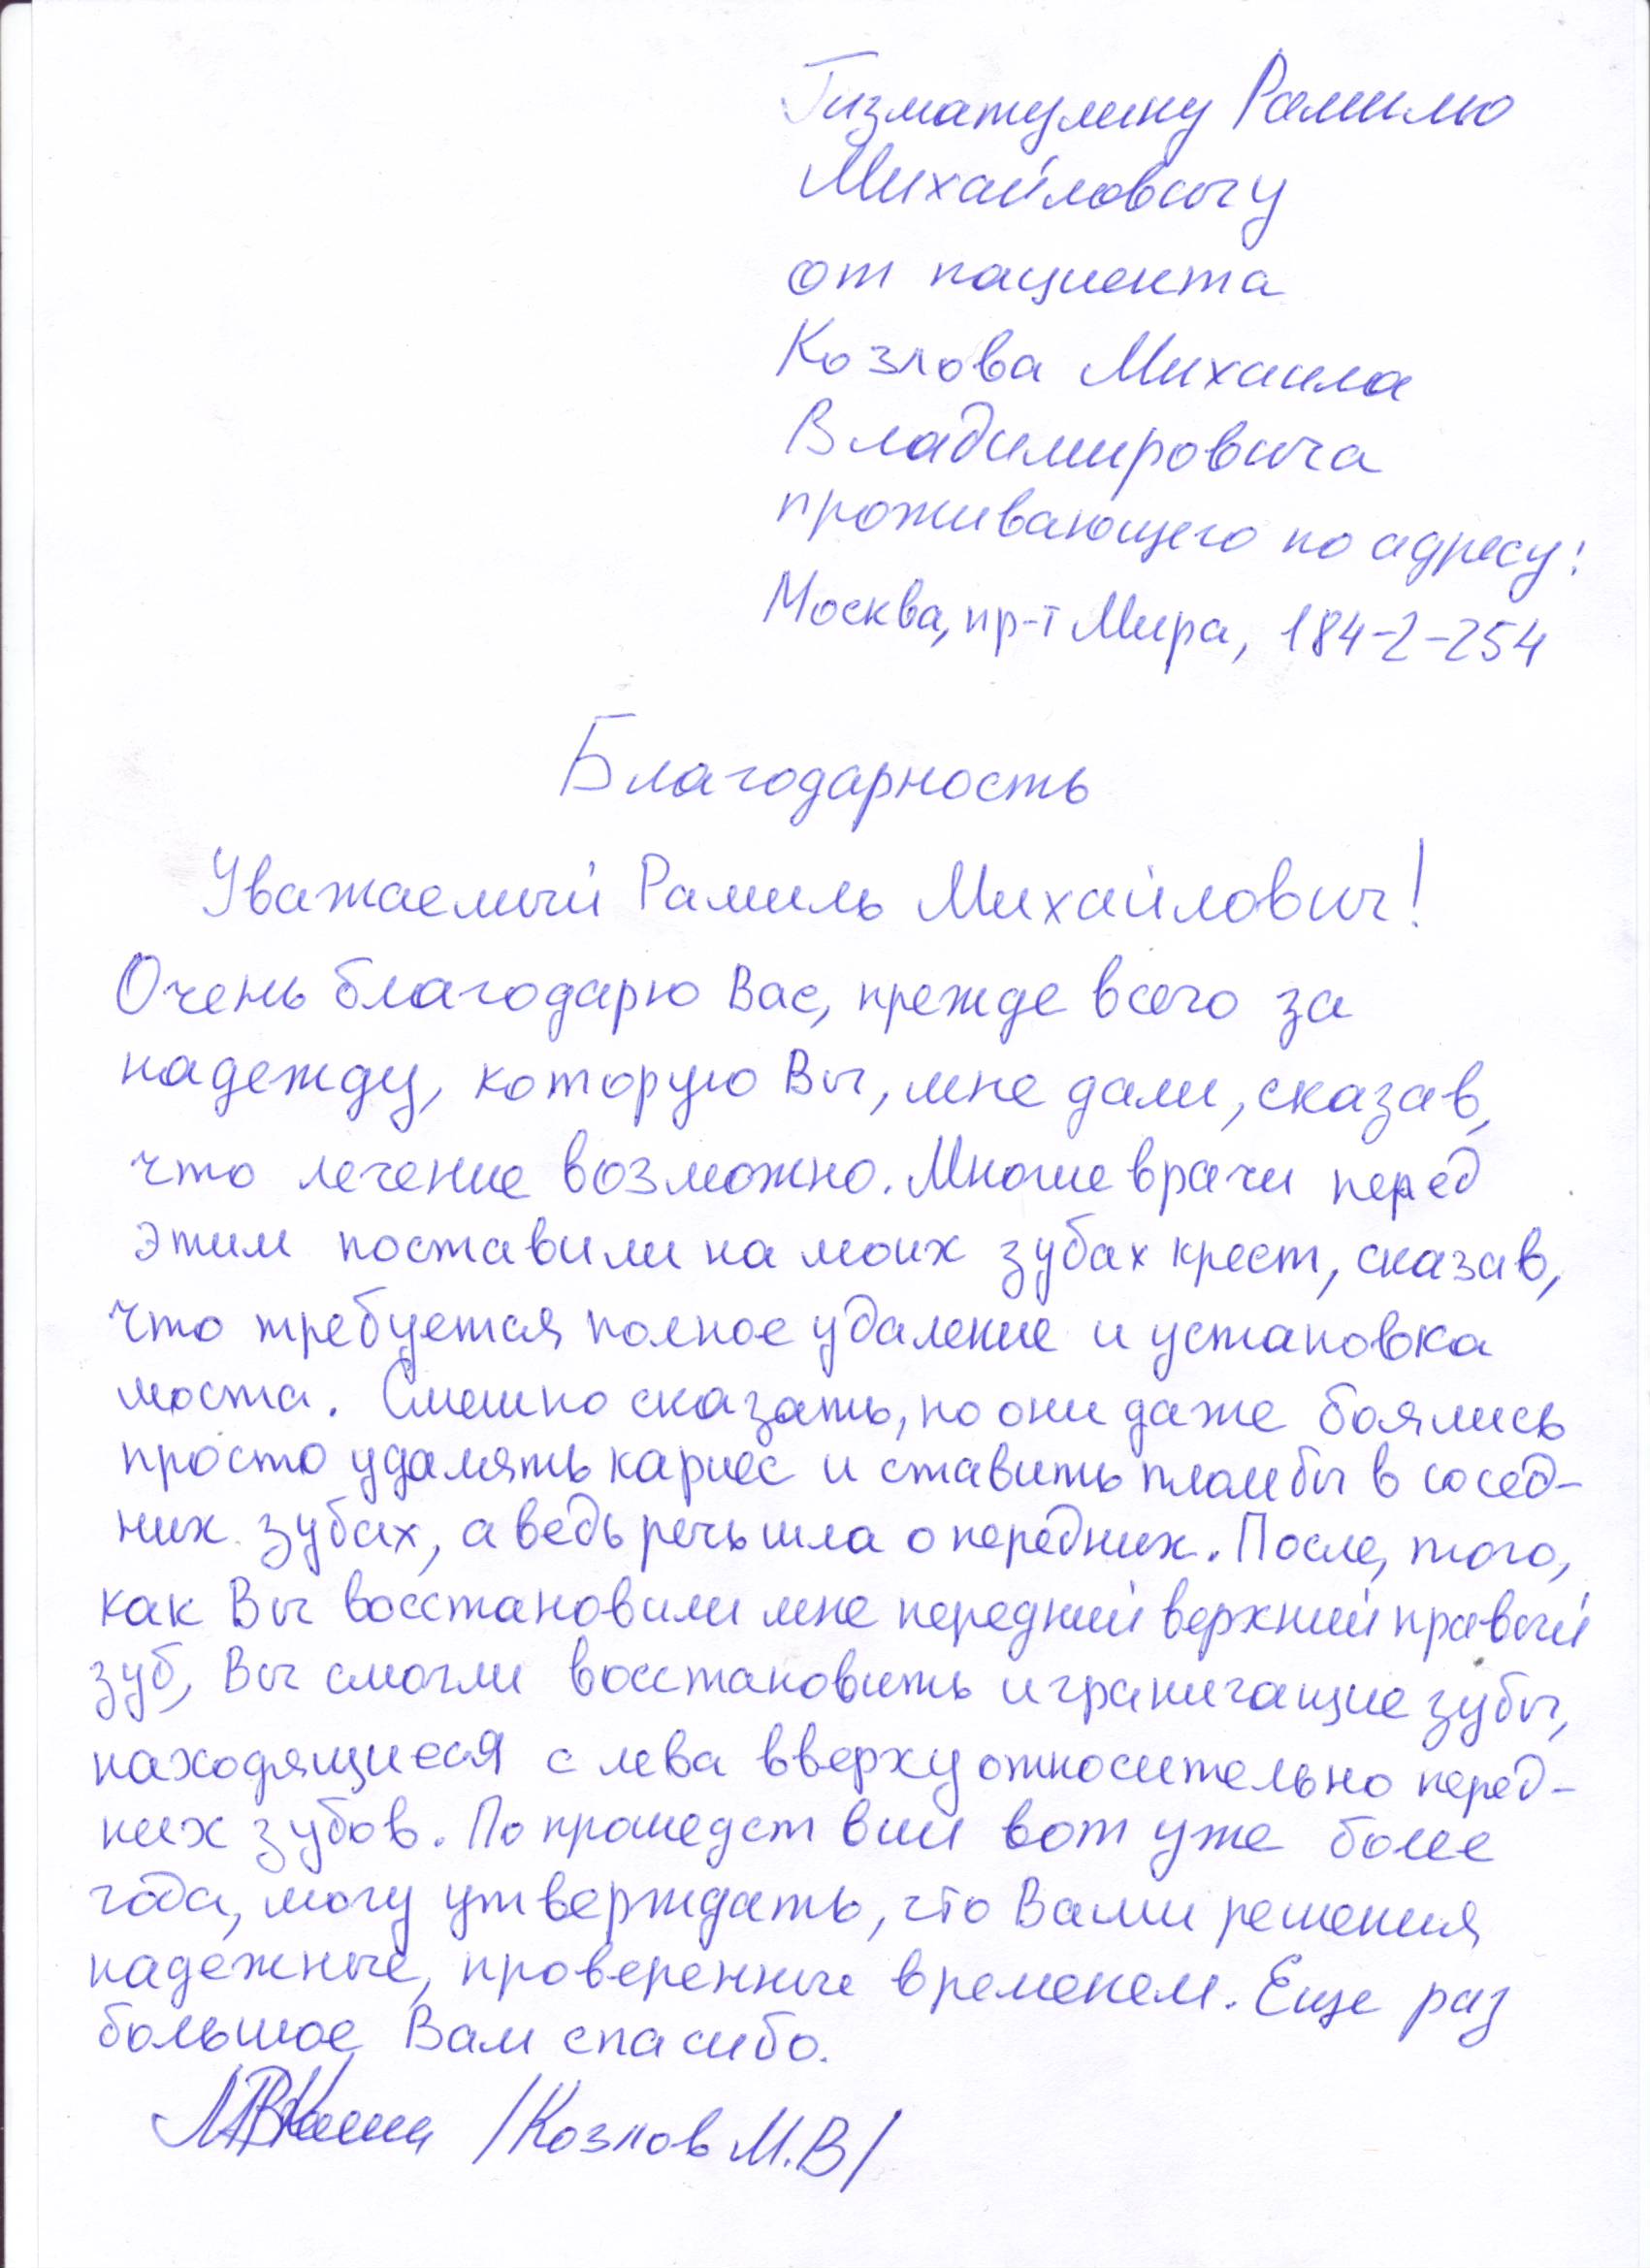 Гизматулину Рамилю
Михайловичу
от пациента
Козлова Михаила
Владимировича
проживающего по адресу:
Москва, пр-т Мира, 184-2-254
Благодарность
Уважаемый Рамиль Михайлович!
Очень благодарю Вас, прежде всего за
надежду, которую Вы, мне дали, сказав,
что лечение возможно. Многие врачи перед
этим поставили на моих зубах крест, сказав,
что требуется полное удаление и установка
моста. Смешно сказать, но они даже боялись
просто удалять кариес и ставить пломбы в сосед-
них зубах, а ведь речь шла о передних. После, того,
как Вы восстановили мне передний верхний правый
зуб, Вы смогли восстановить и граничащие зубы,
находящиеся с лева вверху относительно перед-
них зубов. По прошедствии вот уже более
года, могу утверждать, что Вами решения
надежные, проверенные временем. Еще раз
большое Вам спасибо.
/Козлов М.В/